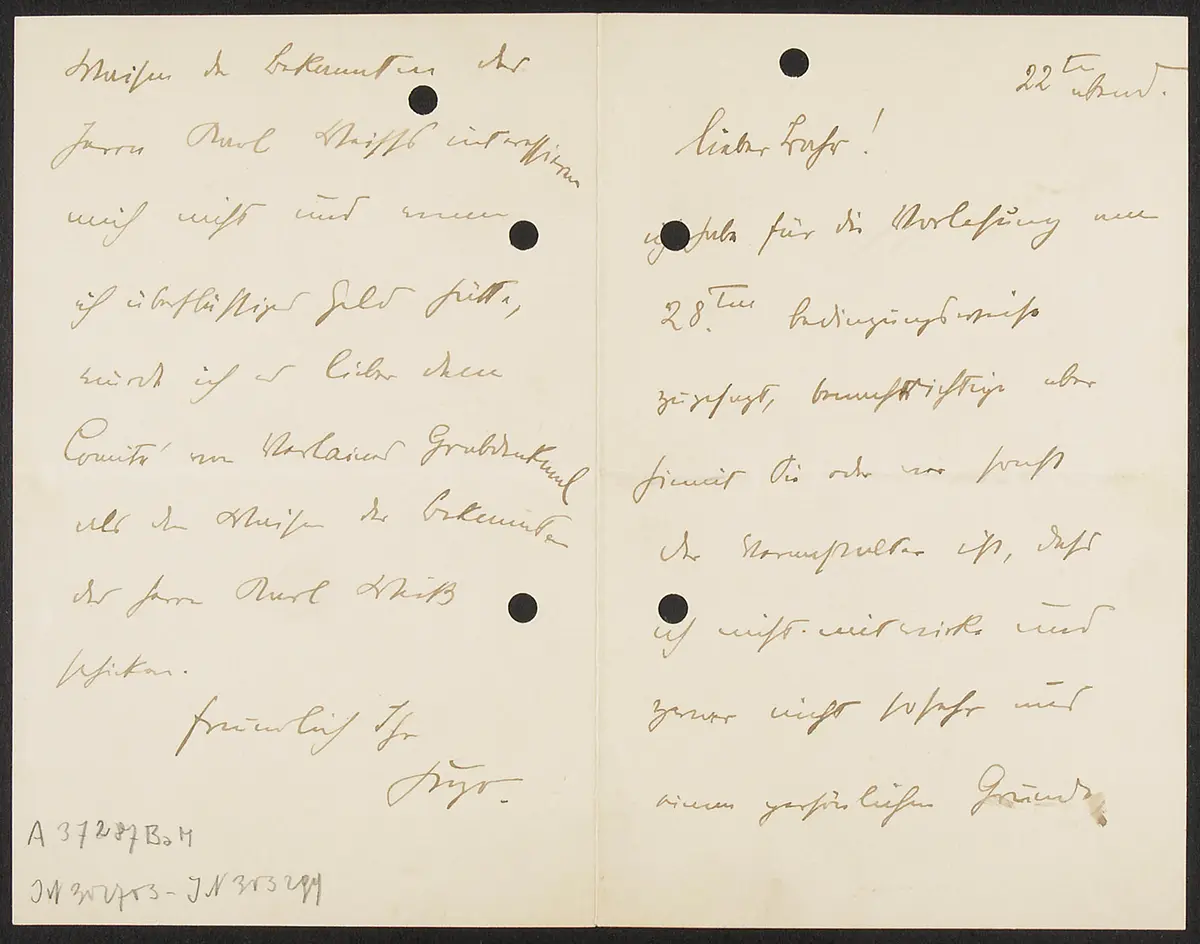 22ten abend.
lieber Bahr!
ich habe für die Vorlesung am
28.ten bedingungsweise
zugesagt, benachrichtige aber
hiemit Sie oder wer sonst
der Veranstalter ist, dass
ich nicht mitwirke und
zwar nicht sosehr aus
einem persönlichen Grunde
Waisen der Bekannten des
Herrn Karl Weiss interessieren
mich nicht und wenn
ich überflüssiges Geld hätte,
würde ich es lieber dem
Comité von Verlaines Grabdenkmal
als den Waisen der Bekannten
des Herrn Karl Weiß
schicken.
freundlich Ihr
Hugo.
A 37287 BaM